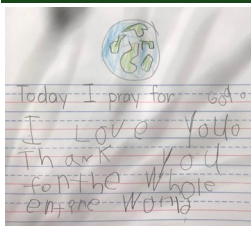 Today I pray for God.
I Love You.
Thank You
for the Whole
entire World